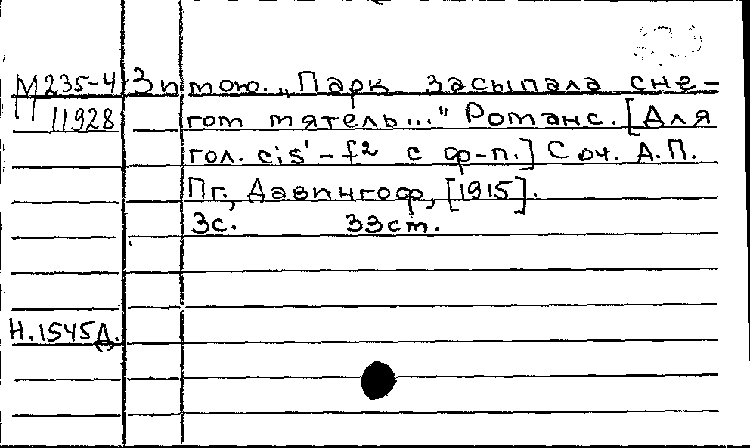 М 235-4 Зимою. „Парк засыпала сне-
11928 гом мятель..." Романс. [Для
гол. cis¹-f² с ф-п.] Соч. А.П.
Пг., Давингоф, [1915].
3с. 33см.
Н.1545Д.